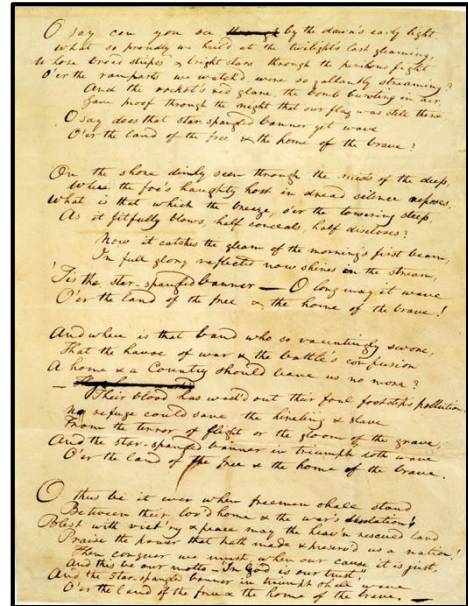 O say can you see through by the dawn's early light
What so proudly we hail'd at the twilight's last gleaming,
Whose broad stripes & bright stars through the perilous fight
O'er the ramparts we watch'd, were so gallantly streaming?
And the rocket's red glare, the bomb bursting in air,
Gave proof through the night that our flag was still there
O say does that star-spangled banner yet wave
O'er the land of the free & the home of the brave?
On the shore dimly seen through the mists of the deep,
Where the foe's haughty host in dread silence reposes,
What is that which the breeze, o'er the towering steep,
As it fitfully blows, half conceals, half discloses?
Now it catches the gleam of the morning's first beam,
In full glory reflected now shines in the stream,
'Tis the star-spangled banner — O long may it wave
O'er the land of the free & the home of the brave!
And where is that band who so vauntingly swore,
That the havoc of war & the battle's confusion
A home & a Country should leave us no more?
—
Their blood has wash'd out their foul footstep's pollution
No refuge could save the hireling & slave
From the terror of flight or the gloom of the grave,
And the star-spangled banner in triumph doth wave
O'er the land of the free & the home of the brave.
O thus be it ever when freemen shall stand
Between their lov'd home & the war's desolation!
Blest with vict'ry & peace may the heav'n rescued land
Praise the power that hath made & preserv'd us a nation!
Then conquer we must, when our cause it is just,
And this be our motto — "In God is our trust,"
And the star-spangled banner in triumph shall wave
O'er the land of the free & the home of the brave. —